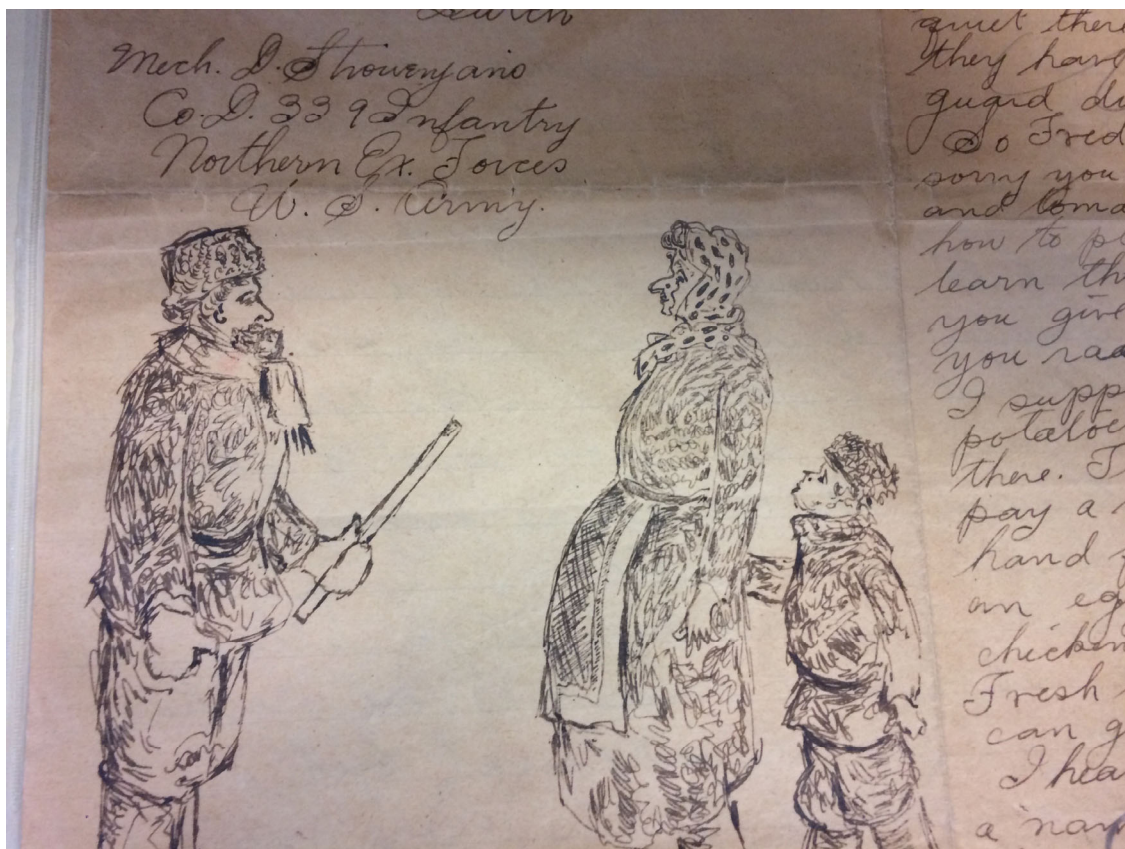 Mech. D.
Co. D. 339 Infantry
Northern Ex. Forces
U. S. Army.
quiet there
they have
guard du
So Fred
sorry you
and toma
how to pl
learn th
you give
you
I supp
potatoe
there.
pay a
hand f
an eg
chicken
Fresh
can g
I hea
a